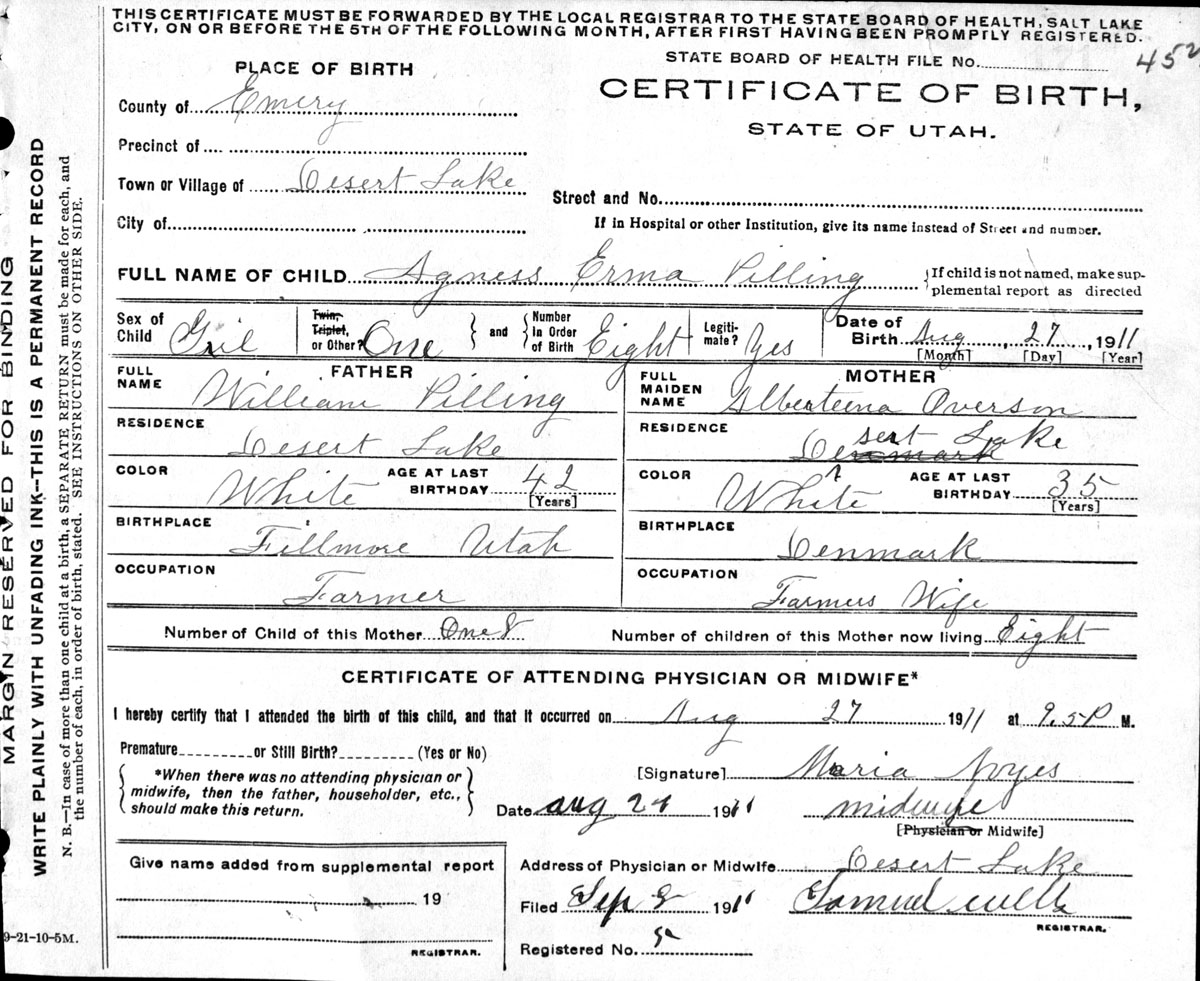 THIS CERTIFICATE MUST BE FORWARDED BY THE LOCAL REGISTRAR TO THE STATE BOARD OF HEALTH, SALT LAKE
CITY, ON OR BEFORE THE 5TH OF THE FOLLOWING MONTH, AFTER FIRST HAVING BEEN PROMPTLY REGISTERED.
STATE BOARD OF HEALTH FILE No. 452
PLACE OF BIRTH
CERTIFICATE OF BIRTH,
STATE OF UTAH.
County of Emery
Precinct of
Town or Village of Desert Lake
Street and No.
City of
If in Hospital or other Institution, give its name instead of Street and number.
FULL NAME OF CHILD Agness Erma Pilling
If child is not named, make sup-
plemental report as directed
Sex of Child Girl
Twin, Triplet, or Other? One
and Number in Order of Birth Eight
Legiti-mate? Yes
Date of Birth Aug 27, 1911
[Month] [Day] [Year]
FATHER
FULL NAME William Pilling
RESIDENCE Desert Lake
COLOR White AGE AT LAST BIRTHDAY 42 [Years]
BIRTHPLACE Fillmore Utah
OCCUPATION Farmer
MOTHER
FULL MAIDEN NAME Alberteena Overson
RESIDENCE Desert Lake
COLOR White AGE AT LAST BIRTHDAY 35 [Years]
BIRTHPLACE Denmark
OCCUPATION Farmers Wife
Number of Child of this Mother One 8 Number of children of this Mother now living Eight
CERTIFICATE OF ATTENDING PHYSICIAN OR MIDWIFE*
I hereby certify that I attended the birth of this child, and that it occurred on Aug 27 1911 at 9.5 P M.
Premature or Still Birth? (Yes or No)
*When there was no attending physician or
midwife, then the father, householder, etc.,
should make this return.
[Signature] Maria Noyes
Date aug 1911 midwife
[Physician or Midwife]
Give name added from supplemental report
19
REGISTRAR.
Address of Physician or Midwife Desert Lake
Filed Sep 1911 Samuel wells
REGISTRAR.
Registered No.
MARGIN RESERVED FOR BINDING
WRITE PLAINLY WITH UNFADING INK—THIS IS A PERMANENT RECORD
N. B.—In case of more than one child at a birth, a SEPARATE RETURN must be made for each, and
the number of each, in order of birth, stated. SEE INSTRUCTIONS ON OTHER SIDE.
9-21-10-5M.